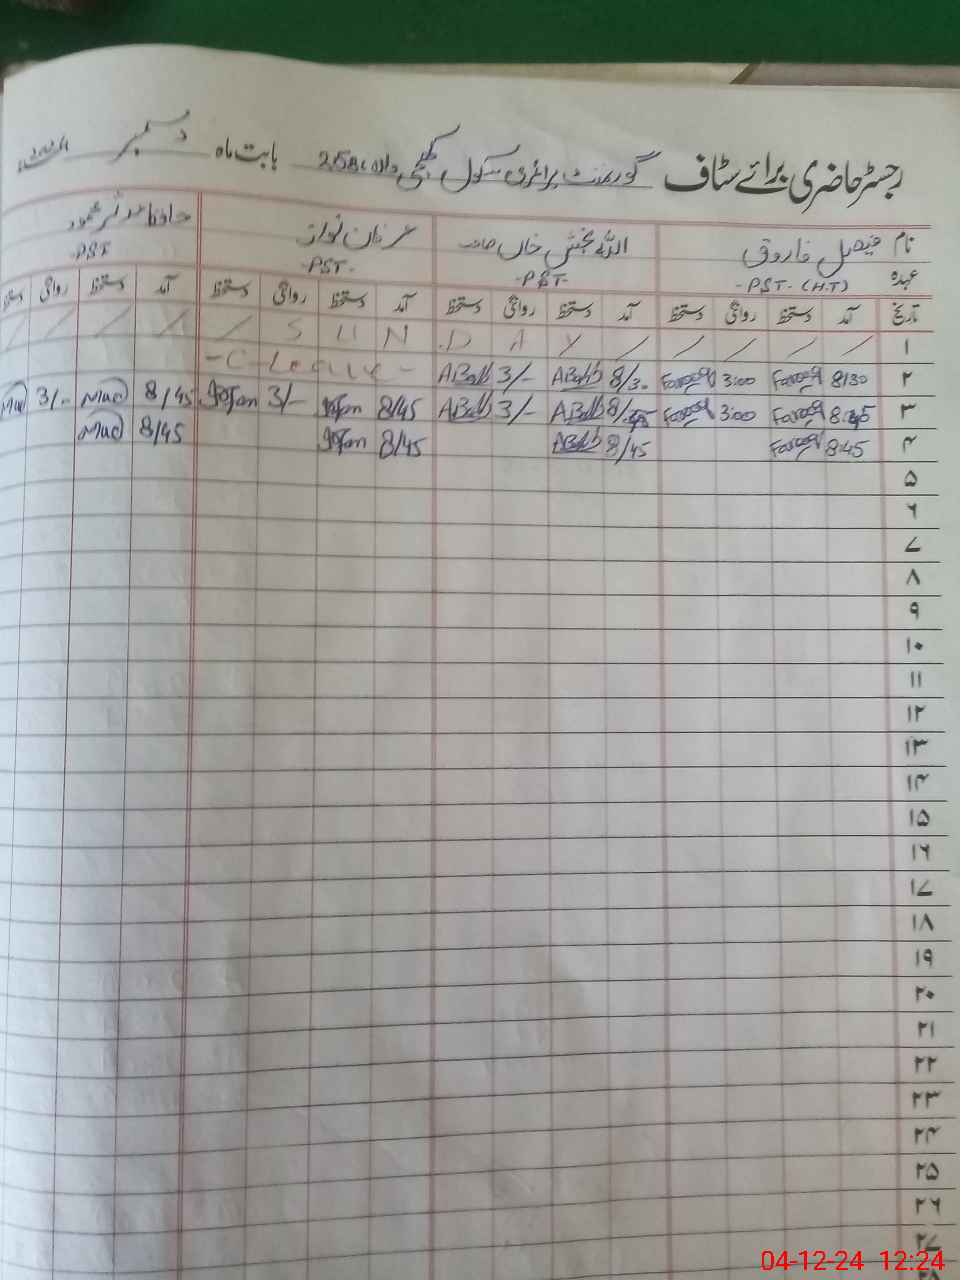 رجسٹر حاضری برائے سٹاف گورنمنٹ پرائمری سکول کھچی والا بابت ماہ دسمبر
نام فیصل فاروق اللہ بخش خاں صاحب عرفان نواز حافظ مدثر محمود
عہدہ PST. (H.T) -PST- -PST- -PST-
تاریخ آمد دستخط روانگی دستخط آمد دستخط روانگی دستخط آمد دستخط روانگی دستخط آمد دستخط روانگی دستخط
۱ / / / / / S U N D A Y / / / /
۲ 8:30 Farooq 3:00 Farooq 8/30 3/- -C-Leave-
۳ 8:45 Farooq 3:00 Farooq 8/45 3/- 8/45 Irfan 3/- Irfan 8/45 3/-
۴ 8:45 Farooq 8/45 8/45 Irfan 8/45
۵
۶
۷
۸
۹
۱۰
۱۱
۱۲
۱۳
۱۴
۱۵
۱۶
۱۷
۱۸
۱۹
۲۰
۲۱
۲۲
۲۳
۲۴
۲۵
۲۶
۲۷
۲۸
04-12-24 12:24